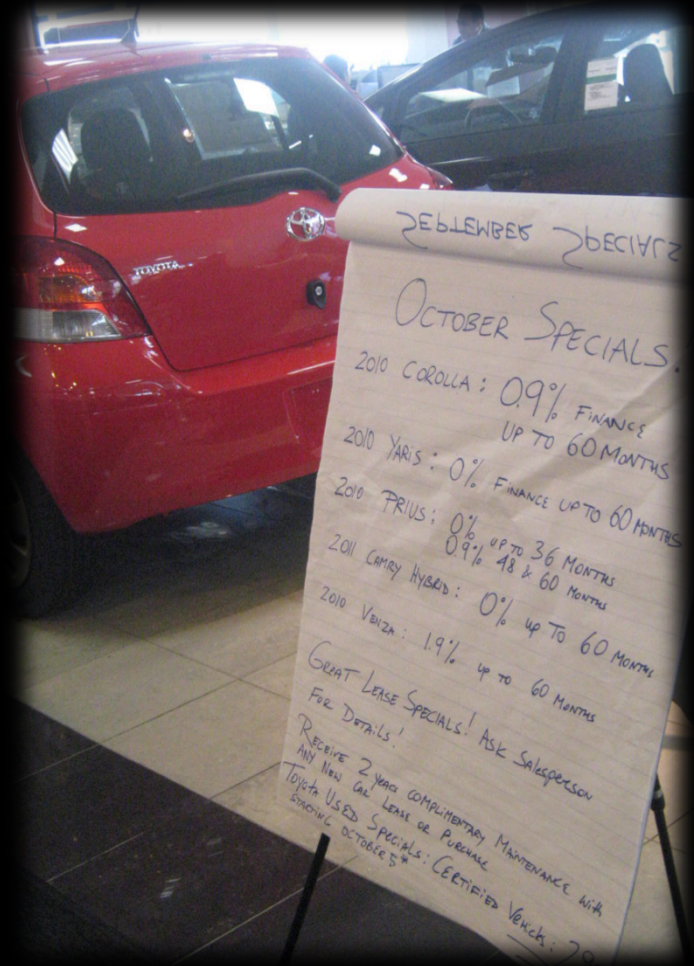 SEPTEMBER SPECIALS
TOYOTA
OCTOBER SPECIALS.
2010 COROLLA: 0.9% FINANCE
UP TO 60 MONTHS
2010 YARIS: 0% FINANCE UP TO 60 MONTHS
2010 PRIUS: 0% UP TO 36 MONTHS
0.9% 48 & 60 MONTHS
2011 CAMRY HYBRID: 0% UP TO 60 MONTHS
2010 VENZA: 1.9% UP TO 60 MONTHS
GREAT LEASE SPECIALS! ASK SALESPERSON
FOR DETAILS!
RECEIVE 2 YEARS COMPLIMENTARY MAINTENANCE WITH
ANY NEW CAR LEASE OR PURCHASE
STARTING OCTOBER 5th
TOYOTA USED SPECIALS: CERTIFIED VEHICLES: